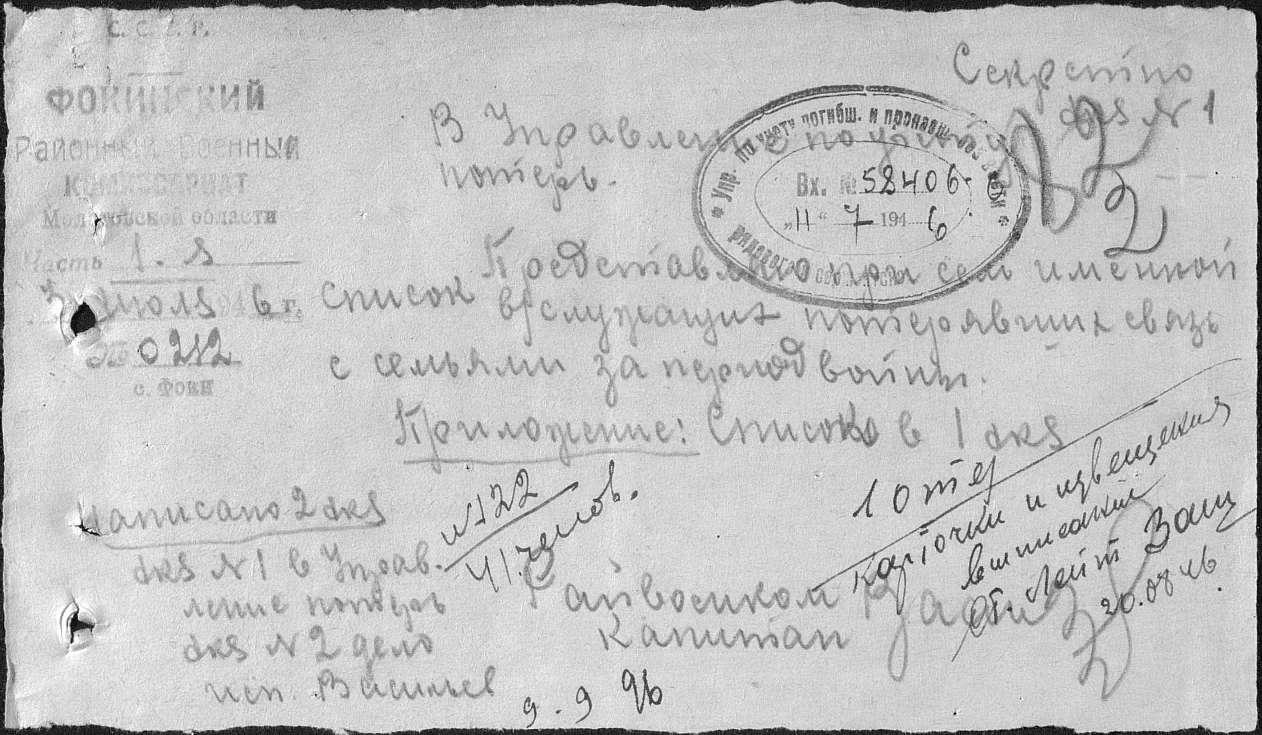 С. С. С. Р.
ФОКИНСКИЙ
Районный Военный
КОМИССАРИАТ
Молотовской области
Часть 1. я
июля 194 6 г.
№ 0212
с. Фоки
Секретно
экз N 1
В Управление по учету
потерь.
* Упр. по учету погибш. и пропавш.
рядового
Вх. № 58406
„11“ 7 1946
Представляю при сем именной
список в/служащих потерявших связь
с семьями за период войны.
Приложение: Список в 1 экз
Написано 2 экз
экз N 1 в Управ.
ление потерь
экз N 2 дело
исп. Васильев
N 122
41 челов.
Райвоенком
Капитан
10 тер
карточки и извещения
выписаны
Ст. Лейт
20.08.46.
9. 9 46